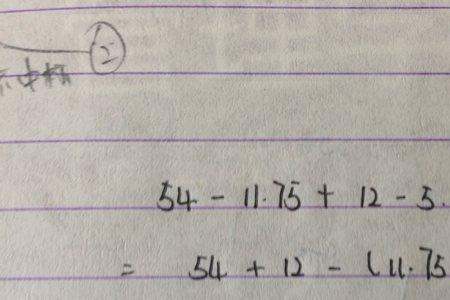 ②
54 - 11.75 + 12 - 5.
= 54 + 12 - (11.75